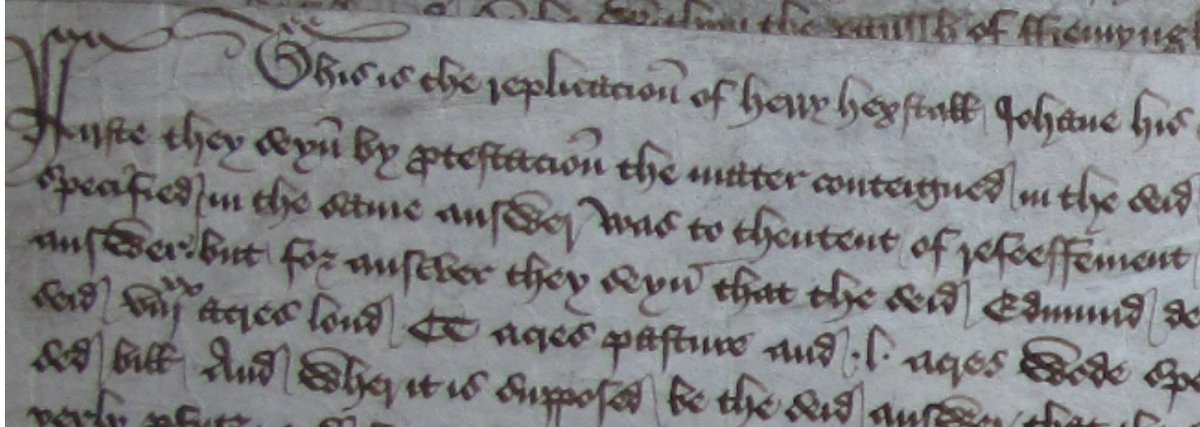 the parissh of
This is the replicacion of Henry Hexstall Johane his
Furste they seyn by protestacion the mater conteigned in the seid
specified in the same answer was to thentent of refeeffement
answer but for answer they seyn that the seid Edmund
seid viij xx acres lond CC acres pasture and .l. acres wode
sed bill And wher it is supposed be the seid answer that